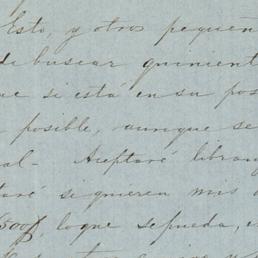 Esto, y otros pequeñ
de buscar quinient
ue si está en su pos
posible, aunque se
al- Aceptaré libran
taré si quieren mis
500$, lo que se pueda, e